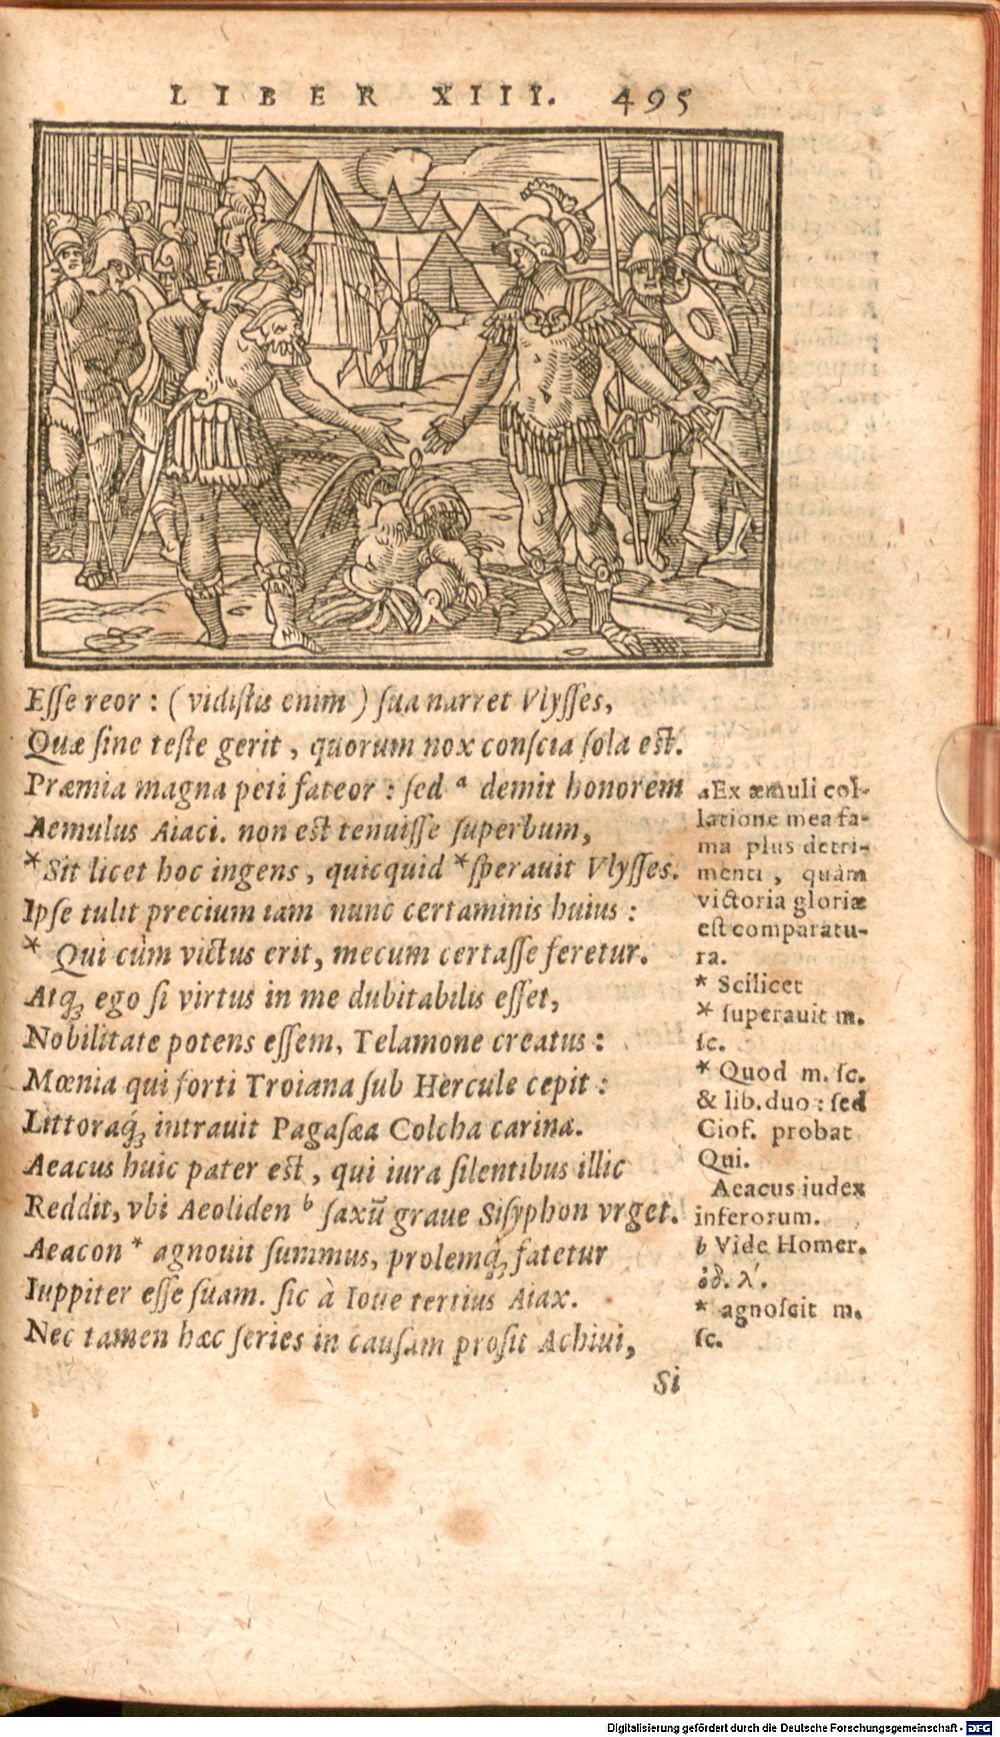 LIBER XIII. 495
Eſſe reor : ( vidiſtis enim ) ſua narret Vlyſſes,
Quæ ſine teſte gerit , quorum nox conſcia ſola eſt.
Præmia magna peti fateor : ſed ᵃ demit honorem
Aemulus Aiaci. non eſt tenuiſſe ſuperbum,
*Sit licet hoc ingens , quicquid *ſperauit Vlyſſes.
Ipſe tulit precium iam nunc certaminis huius :
* Qui cùm victus erit, mecum certaſſe feretur.
Atq; ego ſi virtus in me dubitabilis eſſet,
Nobilitate potens eſſem, Telamone creatus :
Mœnia qui forti Troiana ſub Hercule cepit :
Littoraq́; intrauit Pagaſæa Colcha carina.
Aeacus huic pater eſt , qui iura ſilentibus illic
Reddit, vbi Aeoliden ᵇ ſaxū graue Siſyphon vrget.
Aeacon * agnouit ſummus, prolemq́; fatetur
Iuppiter eſſe ſuam. ſic à Ioue tertius Aiax.
Nec tamen hæc ſeries in cauſam proſit Achiui,
Si
aEx æmuli col-
latione mea fa-
ma plus detri-
menti , quàm
victoria gloriæ
eſt comparatu-
ra.
* Scilicet
* ſuperauit m.
ſc.
* Quod m. ſc.
& lib. duo : ſed
Cioſ. probat
Qui.
Aeacus iudex
inferorum.
b Vide Homer.
ὀδ. λ´.
* agnoſcit m.
ſc.
Digitalisierung gefördert durch die Deutsche Forschungsgemeinschaft - DFG